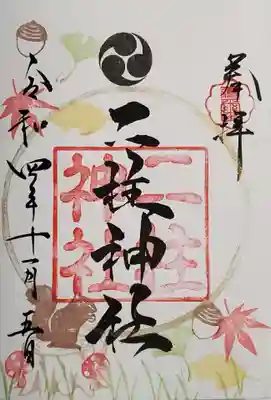 奉拝
二柱神社
二柱
神社
令和四年十一月五日